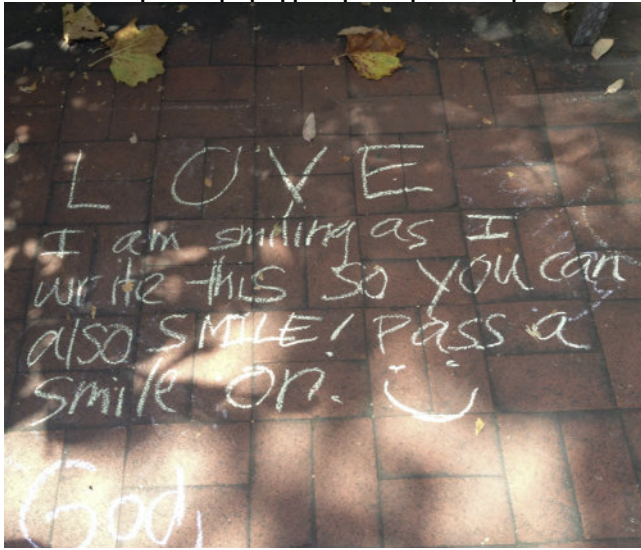 LOVE
I am smiling as I
write this so you can
also SMILE! pass a
smile on.
God,